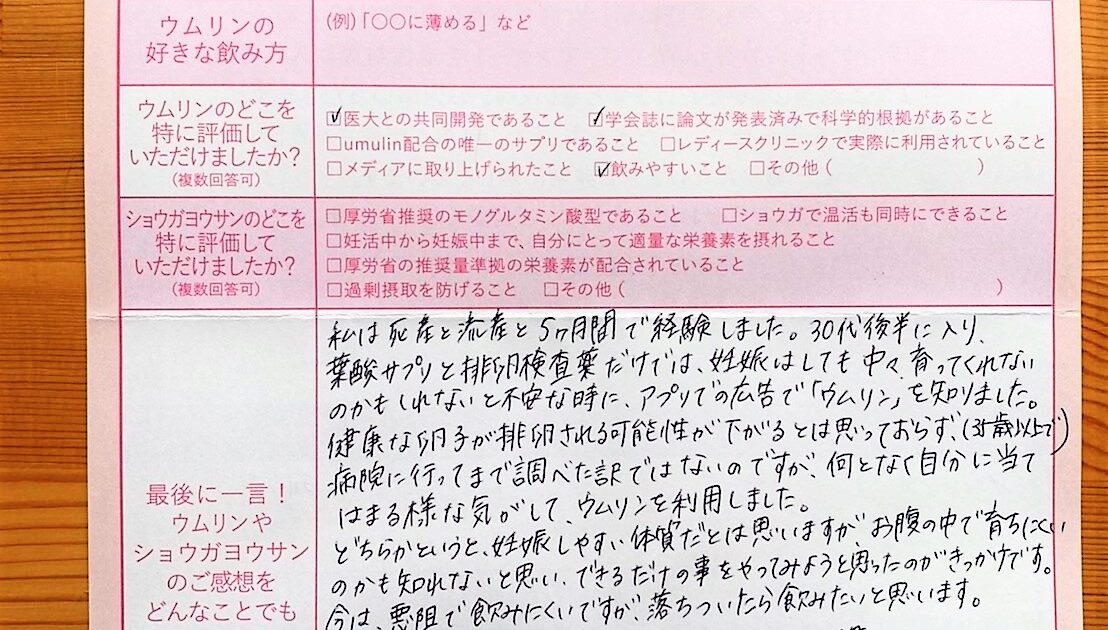 ウムリンの
好きな飲み方
(例)「〇〇に薄める」など
ウムリンのどこを
特に評価して
いただけましたか?
(複数回答可)
☑医大との共同開発であること ☑学会誌に論文が発表済みで科学的根拠があること
□umulin配合の唯一のサプリであること □レディースクリニックで実際に利用されていること
□メディアに取り上げられたこと ☑飲みやすいこと □その他( )
ショウガヨウサンのどこを
特に評価して
いただけましたか?
(複数回答可)
□厚労省推奨のモノグルタミン酸型であること □ショウガで温活も同時にできること
□妊活中から妊娠中まで、自分にとって適量な栄養素を摂れること
□厚労省の推奨量準拠の栄養素が配合されていること
□過剰摂取を防げること □その他( )
最後に一言!
ウムリンや
ショウガヨウサン
のご感想を
どんなことでも
私は死産と流産と5ヶ月間で経験しました。30代後半に入り、
葉酸サプリと排卵検査薬だけでは、妊娠はしても中々育ってくれない
のかもしれないと不安な時に、アプリでの広告で「ウムリン」を知りました。
健康な卵子が排卵される可能性が下がるとは思っておらず、(35歳以上で)
病院に行ってまで調べた訳ではないのですが、何となく自分に当て
はまる様な気がして、ウムリンを利用しました。
どちらかというと、妊娠しやすい体質だとは思いますが、お腹の中で育ちにくい
のかも知れないと思い、できるだけの事をやってみようと思ったのがきっかけです。
今は、悪阻で飲みにくいですが、落ちついたら飲みたいと思います。